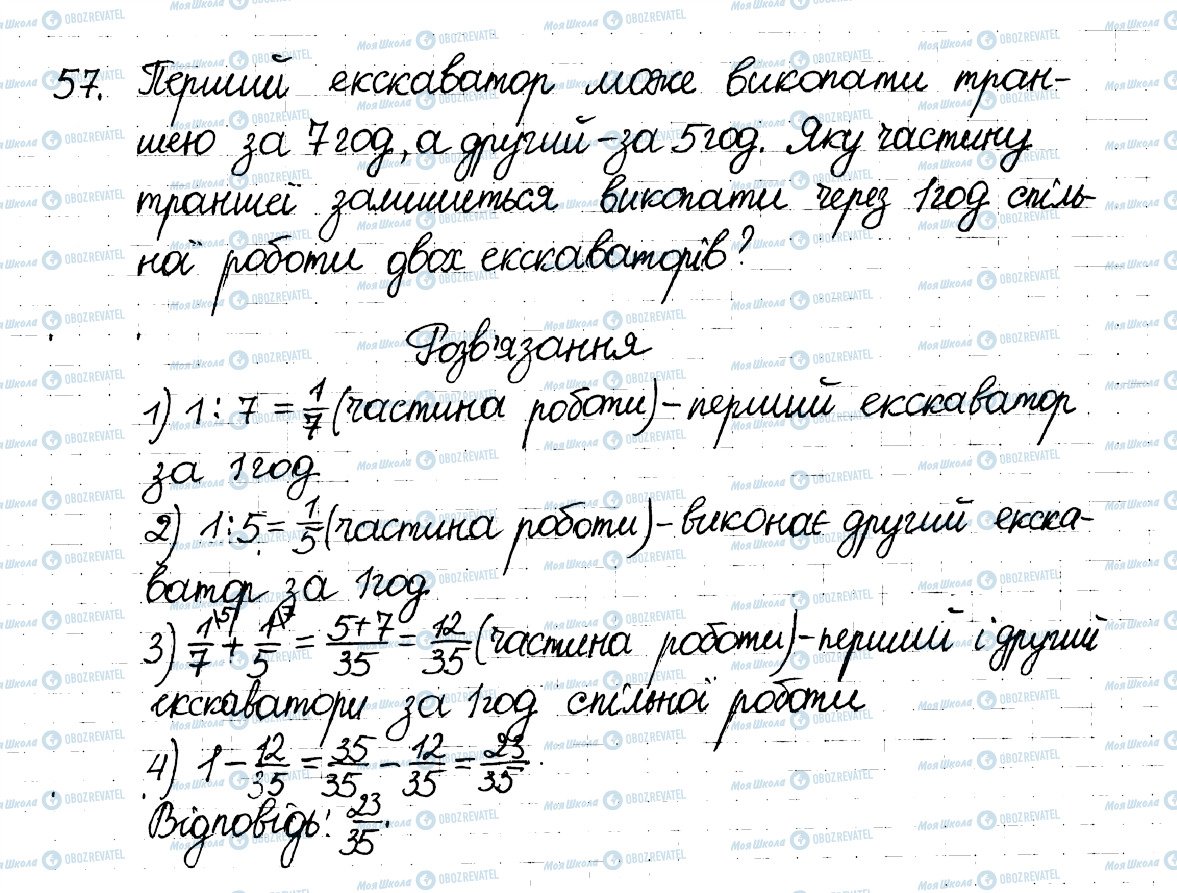 57. Перший екскаватор може викопати тран-
шею за 7 год, а другий - за 5 год. Яку частину
траншеї залишиться викопати через 1 год спіль-
ної роботи двох екскаваторів?
Розв'язання
1) 1 : 7 = 1/7 (частина роботи) - перший екскаватор
за 1 год
2) 1 : 5 = 1/5 (частина роботи) - виконає другий екска-
ватор за 1 год
3) 1\5/7 + 1\7/5 = 5+7/35 = 12/35 (частина роботи) - перший і другий
екскаватори за 1 год спільної роботи
4) 1 - 12/35 = 35/35 - 12/35 = 23/35.
Відповідь: 23/35.
Моя Школа OBOZREVATEL